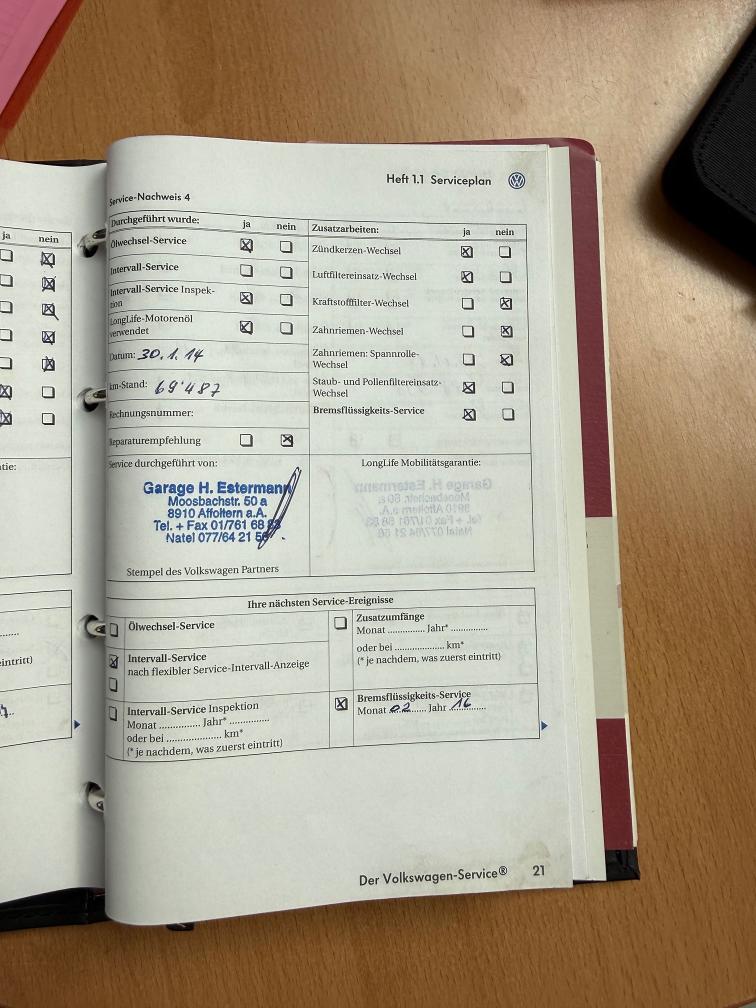 Heft 1.1 Serviceplan
Service-Nachweis 4
Durchgeführt wurde: ja nein
Ölwechsel-Service
Intervall-Service
Intervall-Service Inspek-
tion
LongLife-Motorenöl
verwendet
Datum: 30.1.14
km-Stand: 69'487
Rechnungsnummer:
Reparaturempfehlung
Zusatzarbeiten: ja nein
Zündkerzen-Wechsel
Luftfiltereinsatz-Wechsel
Kraftstofffilter-Wechsel
Zahnriemen-Wechsel
Zahnriemen: Spannrolle-
Wechsel
Staub- und Pollenfiltereinsatz-
Wechsel
Bremsflüssigkeits-Service
Service durchgeführt von:
Garage H. Estermann
Moosbachstr. 50 a
8910 Affoltern a.A.
Tel. + Fax 01/761 68
Natel 077/64 21
Stempel des Volkswagen Partners
LongLife Mobilitätsgarantie:
Ihre nächsten Service-Ereignisse
Ölwechsel-Service
Intervall-Service
nach flexibler Service-Intervall-Anzeige
Intervall-Service Inspektion
Monat ............... Jahr* ...............
oder bei .................... km*
(* je nachdem, was zuerst eintritt)
Zusatzumfänge
Monat .............. Jahr* ..............
oder bei .................. km*
(* je nachdem, was zuerst eintritt)
Bremsflüssigkeits-Service
Monat 02 Jahr 16
Der Volkswagen-Service® 21
ja nein
tie:
eintritt)